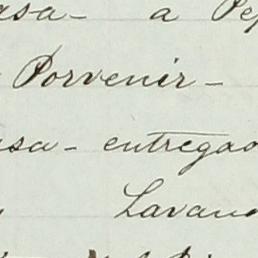 asa- a Pe
Porvenir-
asa- entregao
Lavan